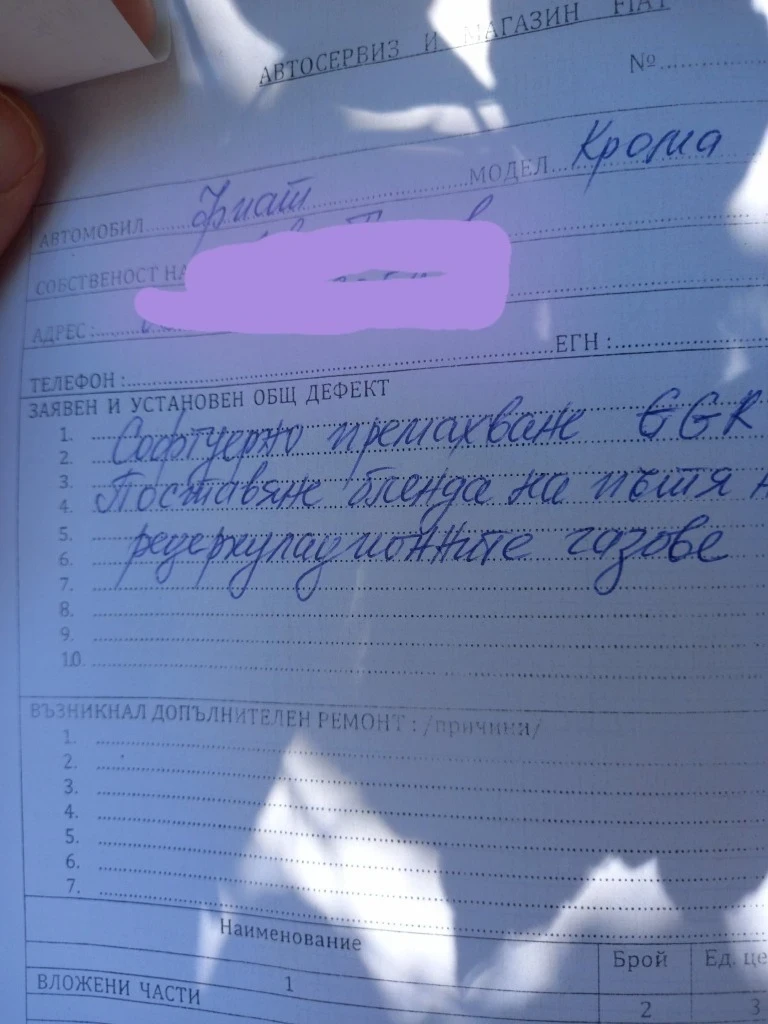 АВТОСЕРВИЗ И МАГАЗИН FIAT
№
АВТОМОБИЛ Фиат МОДЕЛ Крома
СОБСТВЕНОСТ НА
АДРЕС:
ТЕЛЕФОН: ЕГН:
ЗАЯВЕН И УСТАНОВЕН ОБЩ ДЕФЕКТ
1.
2. Софтуерно премахване EGR
3.
4. Поставяне бленда на пътя
5.
6. рециркулационните газове
7.
8.
9.
10.
ВЪЗНИКНАЛ ДОПЪЛНИТЕЛЕН РЕМОНТ: /причини/
1.
2.
3.
4.
5.
6.
7.
Наименование Брой Ед. це
ВЛОЖЕНИ ЧАСТИ 1 2 3